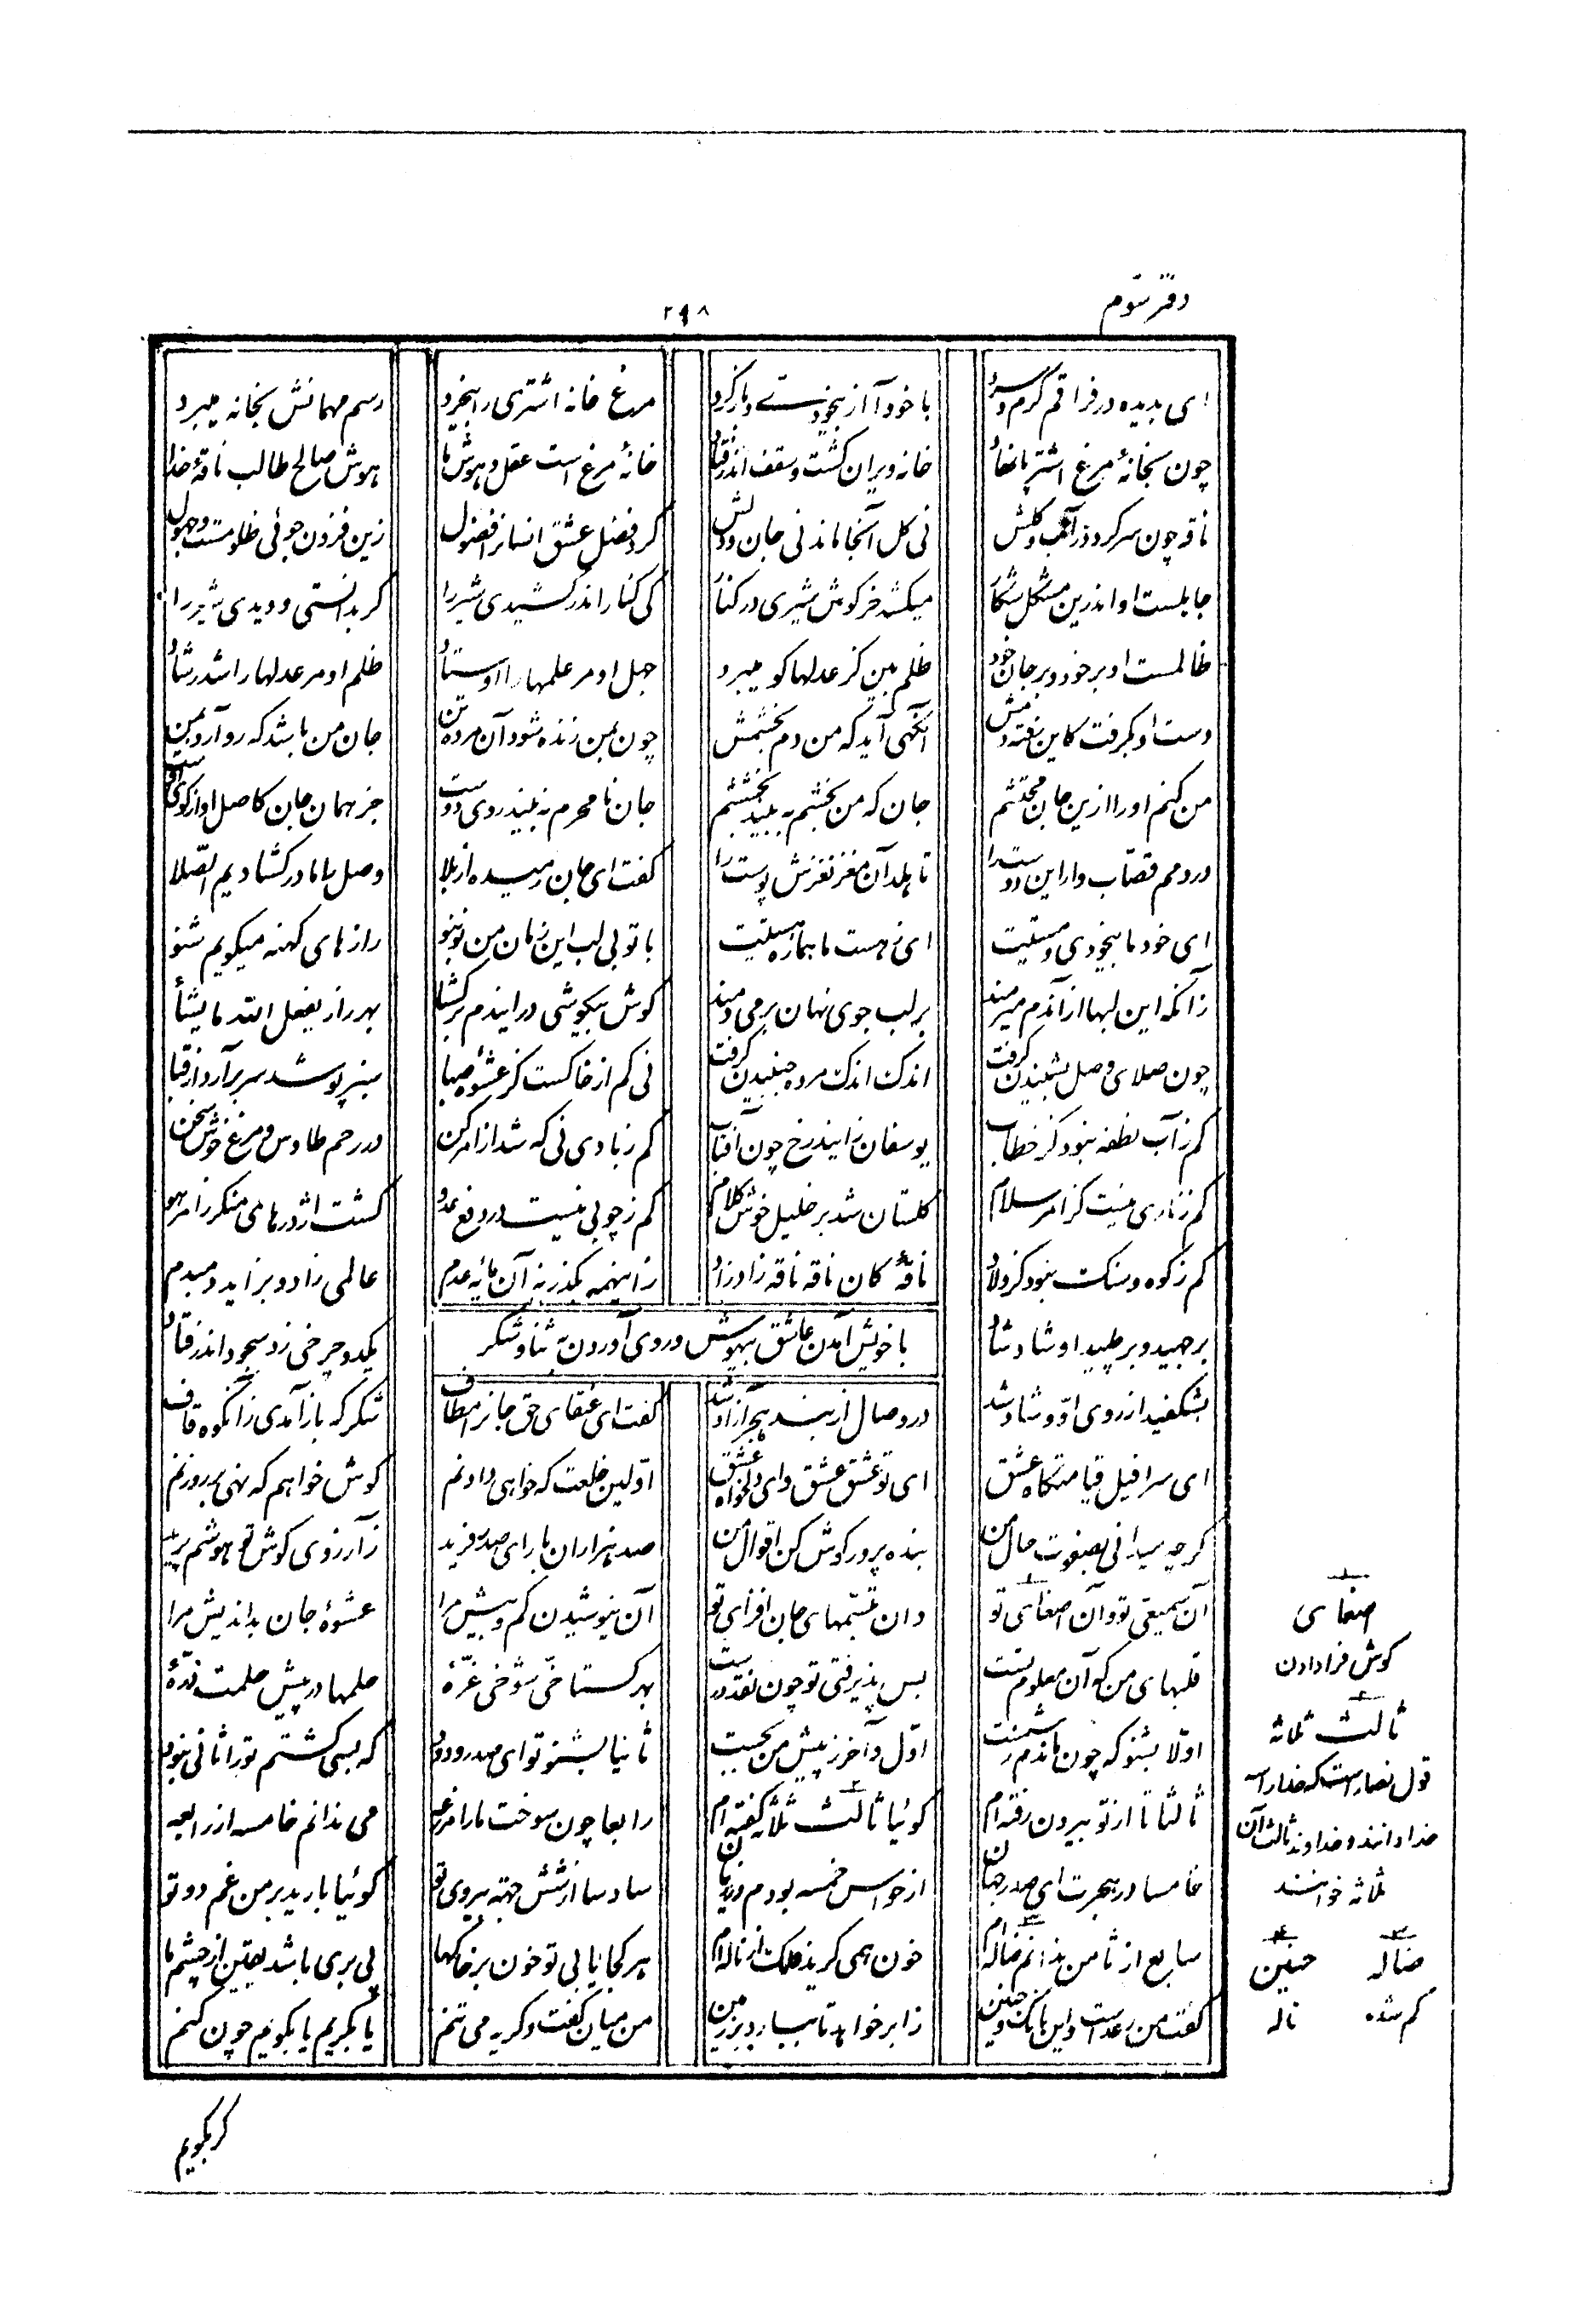 دفتر سوم
۲۹۸
ای بدیده در فراقم گرم و سرد با خود آ از بیخودی و باز گرد مرغ خانه اشتری را بیخرد رسم مهمانش بخانه میبرد
چون بخانهٔ مرغ اشتر پا نهاد خانه ویران گشت و سقف اندر فتاد خانهٔ مرغ است عقل و هوش ما هوش صالح طالب ناقهٔ خدا
ناقه چون سر کرد در آب و گلش نی گل آنجا ماند نی جان و دلش کرد فضل عشق انسانرا فضول زین فزون جوئی ظلومست و جهول
جاهلست او اندرین مشکل شکار میکشد خرگوش شیری در کنار کی کنار اندر کشیدی شیر را گر بدانستی و دیدی شیر را
ظالمست او بر خود و بر جان خود ظلم بین کز عدلها گو میبرد جهل او مر علمها را اوستاد ظلم او مر عدلها را شد رشاد
دست او بگرفت کاین رفته دمش آنگهی آید که من دم بخشمش چون بمن زنده شود آن مرده تن جان من باشد که رو آرد بمن
من کنم او را ازین جان محتشم جان که من بخشم به بیند بخششم جان نامحرم نه بیند روی دوست جز همان جان کاصل او از کوی اوست
در دمم قصاب وار این دوست را تا هلد آن مغز نغزش پوست را گفت ای جان رمیده از بلا وصل ما را در گشادیم الصلا
ای خود ما بیخودی و مستیت ای ز هست ما هماره هستیت با تو بی لب این زمان من نو بنو رازهای کهنه میگویم شنو
زانکه این لبها از آندم میرمند بر لب جوی نهان بر می دمند گوش بیگوشی در ایندم بر گشا بهر راز یفعل الله ما یشأ
چون صلای وصل بشنیدن گرفت اندک اندک مرده جنبیدن گرفت نی کم از خاکست کز عشوهٔ صبا سبز پوشد سر بر آرد از قبا
کم ز آب نطفه نبود کز خطاب یوسفان زایند رخ چون آفتاب کم ز بادی نی که شد از امر کن در رحم طاوس و مرغ خوش سخن
کم ز ناری نیست کز امر سلام گلستان شد بر خلیل خوش کلام کم ز چوبی نیست در دفع عدو گشت اژدرهای منکر ز امر هو
کم ز کوه و سنگ نبود کز ولاد ناقهٔ کان ناقه ناقه زاد زاد زاینهمه بگذر نه آن مایه عدم عالمی زاد و بزاید دمبدم
بر جهید و بر طپید او شاد شاد یکدو چرخی زد سجود اندر فتاد
با خویش آمدن عاشق بیهوش و روی آوردن به ثنا و شکر
بشکفید از روی او و شاد شد در وصال از بند هجر آزاد شد گفت ای عنقای حق جانرا مطاف شکر که باز آمدی زانکوه قاف
ای سرافیل قیامتگاه عشق ای تو عشق عشق و ای دلخواه عشق اولین خلعت که خواهی دادنم گوش خواهم که نهی بر روزنم
گرچه میدانی بصفوت حال من بنده پرور گوش کن اقوال من صد هزاران بار ای صدر فرید ز آرزوی گوش تو هوشم پرید
آن سمیعی تو و آن اصغای تو وان تبسمهای جان افزای تو آن نیوشیدن کم و بیش مرا عشوهٔ جان بداندیش مرا
قلبهای من که آن معلوم تست بس پذیرفتی تو چون نقد درست بهر گستاخی شوخی غرهٔ حلمها در پیش حلمت ذرهٔ
اولا بشنو که چون ماندم ز شست اول و آخر ز پیش من بجست ثانیا بشنو تو ای صدر ودود که بسی گشتم ترا ثانی نبود
ثالثا تا از تو بیرون رفته ام گوئیا ثالث ثلاثه گفته ام رابعا چون سوخت ما را مزرعه می ندانم خامسه از رابعه
خامسا در هجرت ای صدر جهان از حواس خمسه بودم در زیان سادسا از شش جهته بی روی تو گوئیا بارید بر من غم دو تو
سابع از ثامن ندانم ضاله ام خون همی گرید فلک از ناله ام هر کجا یابی تو خون بر خاکها پی بری باشد یقین از چشم ما
گفت من رعدست و این بانگ و حنین ز ابر خواهد تا ببارد بر زمین من میان گفت و گریه می تنم یا بگریم یا بگویم چون کنم
۱
اصغای
گوش فرا دادن
۲
ثالث ثلاثه
قول نصاراست که خدا را سه
خدا دانند و خداوند ثالث آن
ثلاثه خوانند
۳ ۴
ضاله حنین
گم شده ناله
گر بگویم